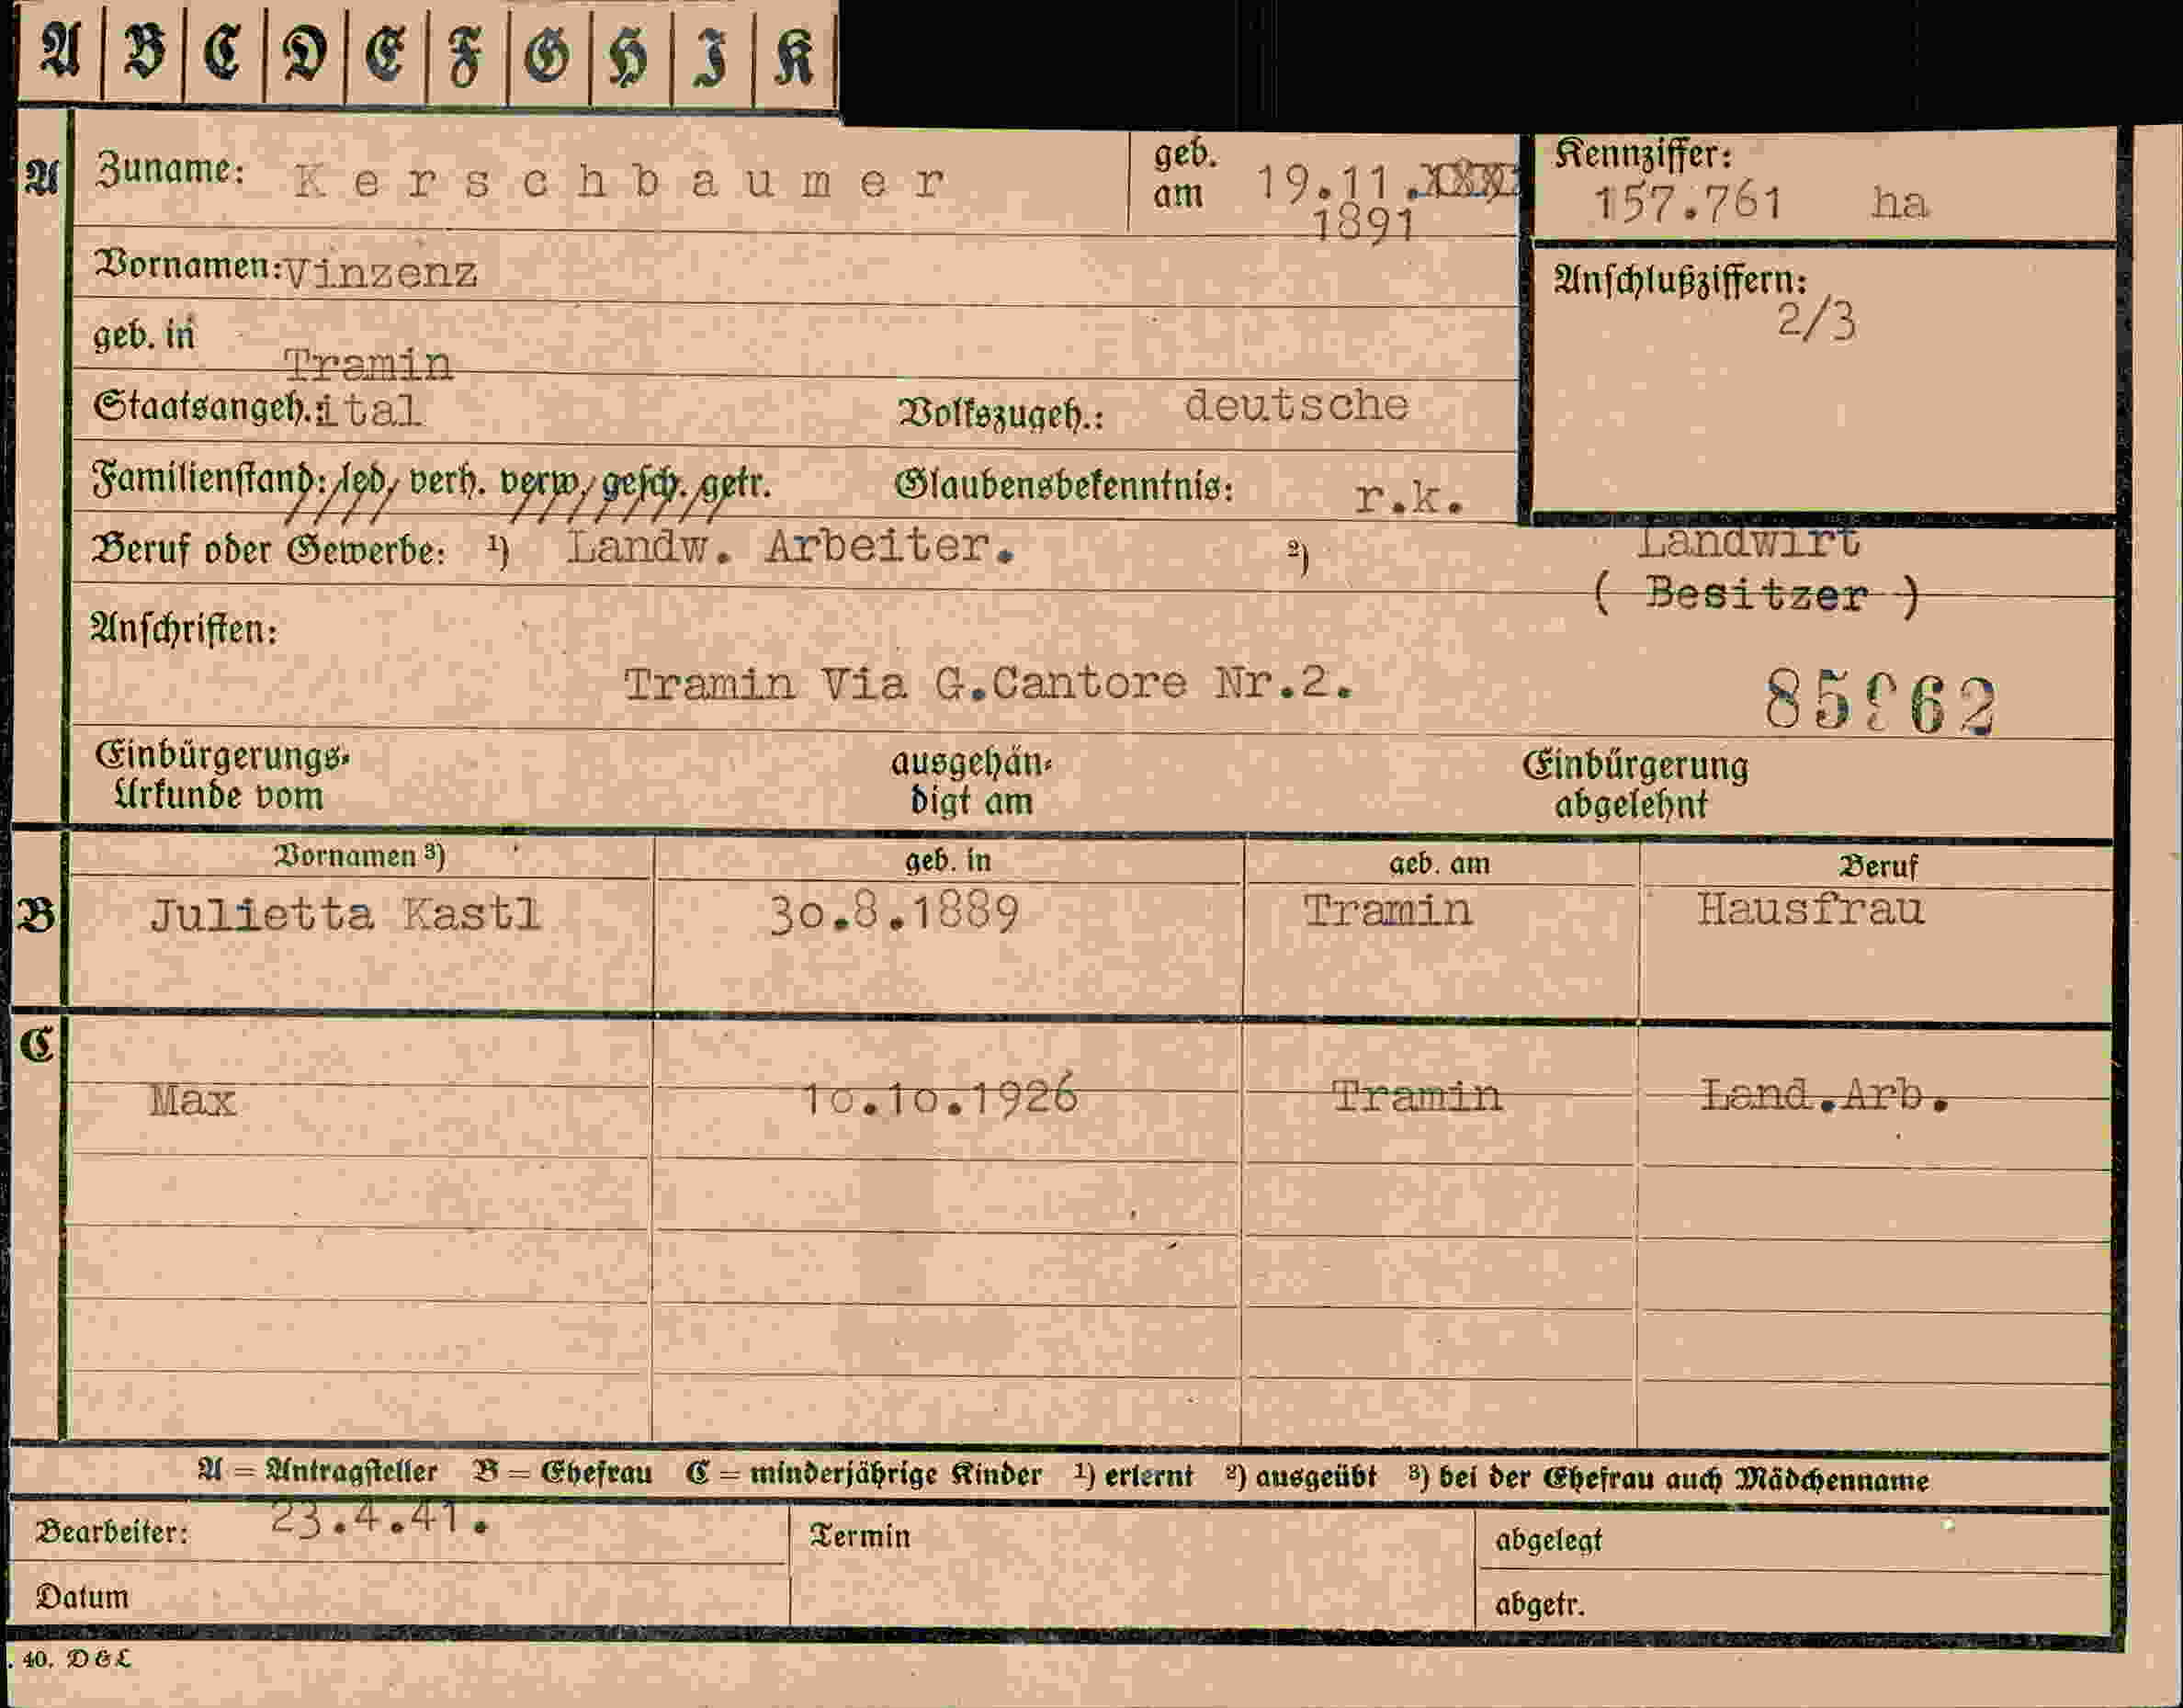 A B C D E F G H I K
A Zuname: Kerschbaumer geb. am 19.11. 1891 Kennziffer: 157.761 ha
Vornamen: Vinzenz Anschlußziffern: 2/3
geb. in Tramin
Staatsangeh.: ital Volkszugeh.: deutsche
Familienstand: led, verh. verw, gesch. getr. Glaubensbekenntnis: r.k.
Beruf oder Gewerbe: ¹) Landw. Arbeiter. ²) Landwirt
( Besitzer )
Anschriften:
Tramin Via G.Cantore Nr.2.
Einbürgerungs- ausgehän- Einbürgerung
Urkunde vom digt am abgelehnt
Vornamen ³) geb. in geb. am Beruf
B Julietta Kastl 30.8.1889 Tramin Hausfrau
C
Max 10.10.1926 Tramin Land.Arb.
A = Antragsteller B = Ehefrau C = minderjährige Kinder ¹) erlernt ²) ausgeübt ³) bei der Ehefrau auch Mädchenname
Bearbeiter: 23.4.41. Termin abgelegt
Datum abgetr.
. 40. D & L